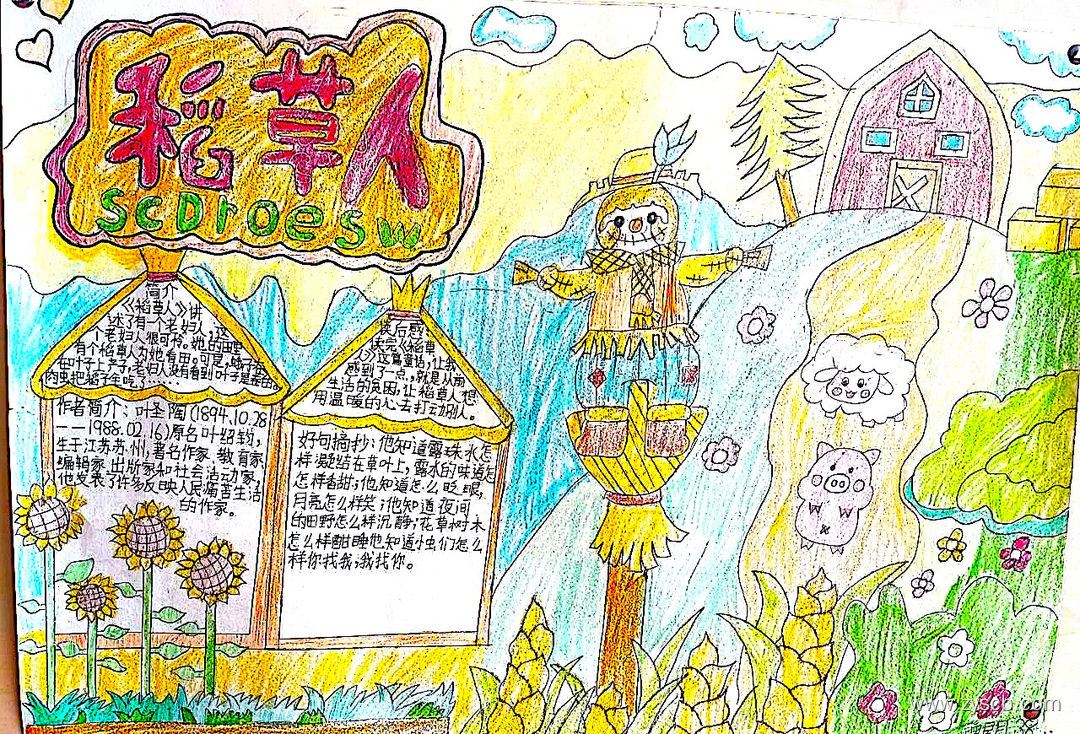 稻草人
ScDroesw
简介
《稻草人》讲
述了有一个老妇人,这
个老妇人很可怜。她的田里
有个稻草人为她看田。可是,蛾子
在叶子上产子,老妇人没有看到叶子里
肉虫把稻子全吃了……
作者简介:叶圣陶(1894.10.28
——1988.02.16)原名叶绍钧,
生于江苏苏州,著名作家、教育家、
编辑家、出版家和社会活动家,
他发表了许多反映人民痛苦生活
的作家。
读后感
读完《稻草
人》这篇童话,让我
感到了一点,就是从前
生活的贫困,让稻草人想
用温暖的心去打动别人。
好句摘抄:他知道露珠水怎
样凝结在草叶上,露水的味道怎
怎样香甜;他知道怎么眨眼,
月亮怎么样笑;他知道夜间
的田野怎么样沉静;花草树木
怎么样酣睡他知道虫们怎么
样你找我,我找你。
www.zyscb.com